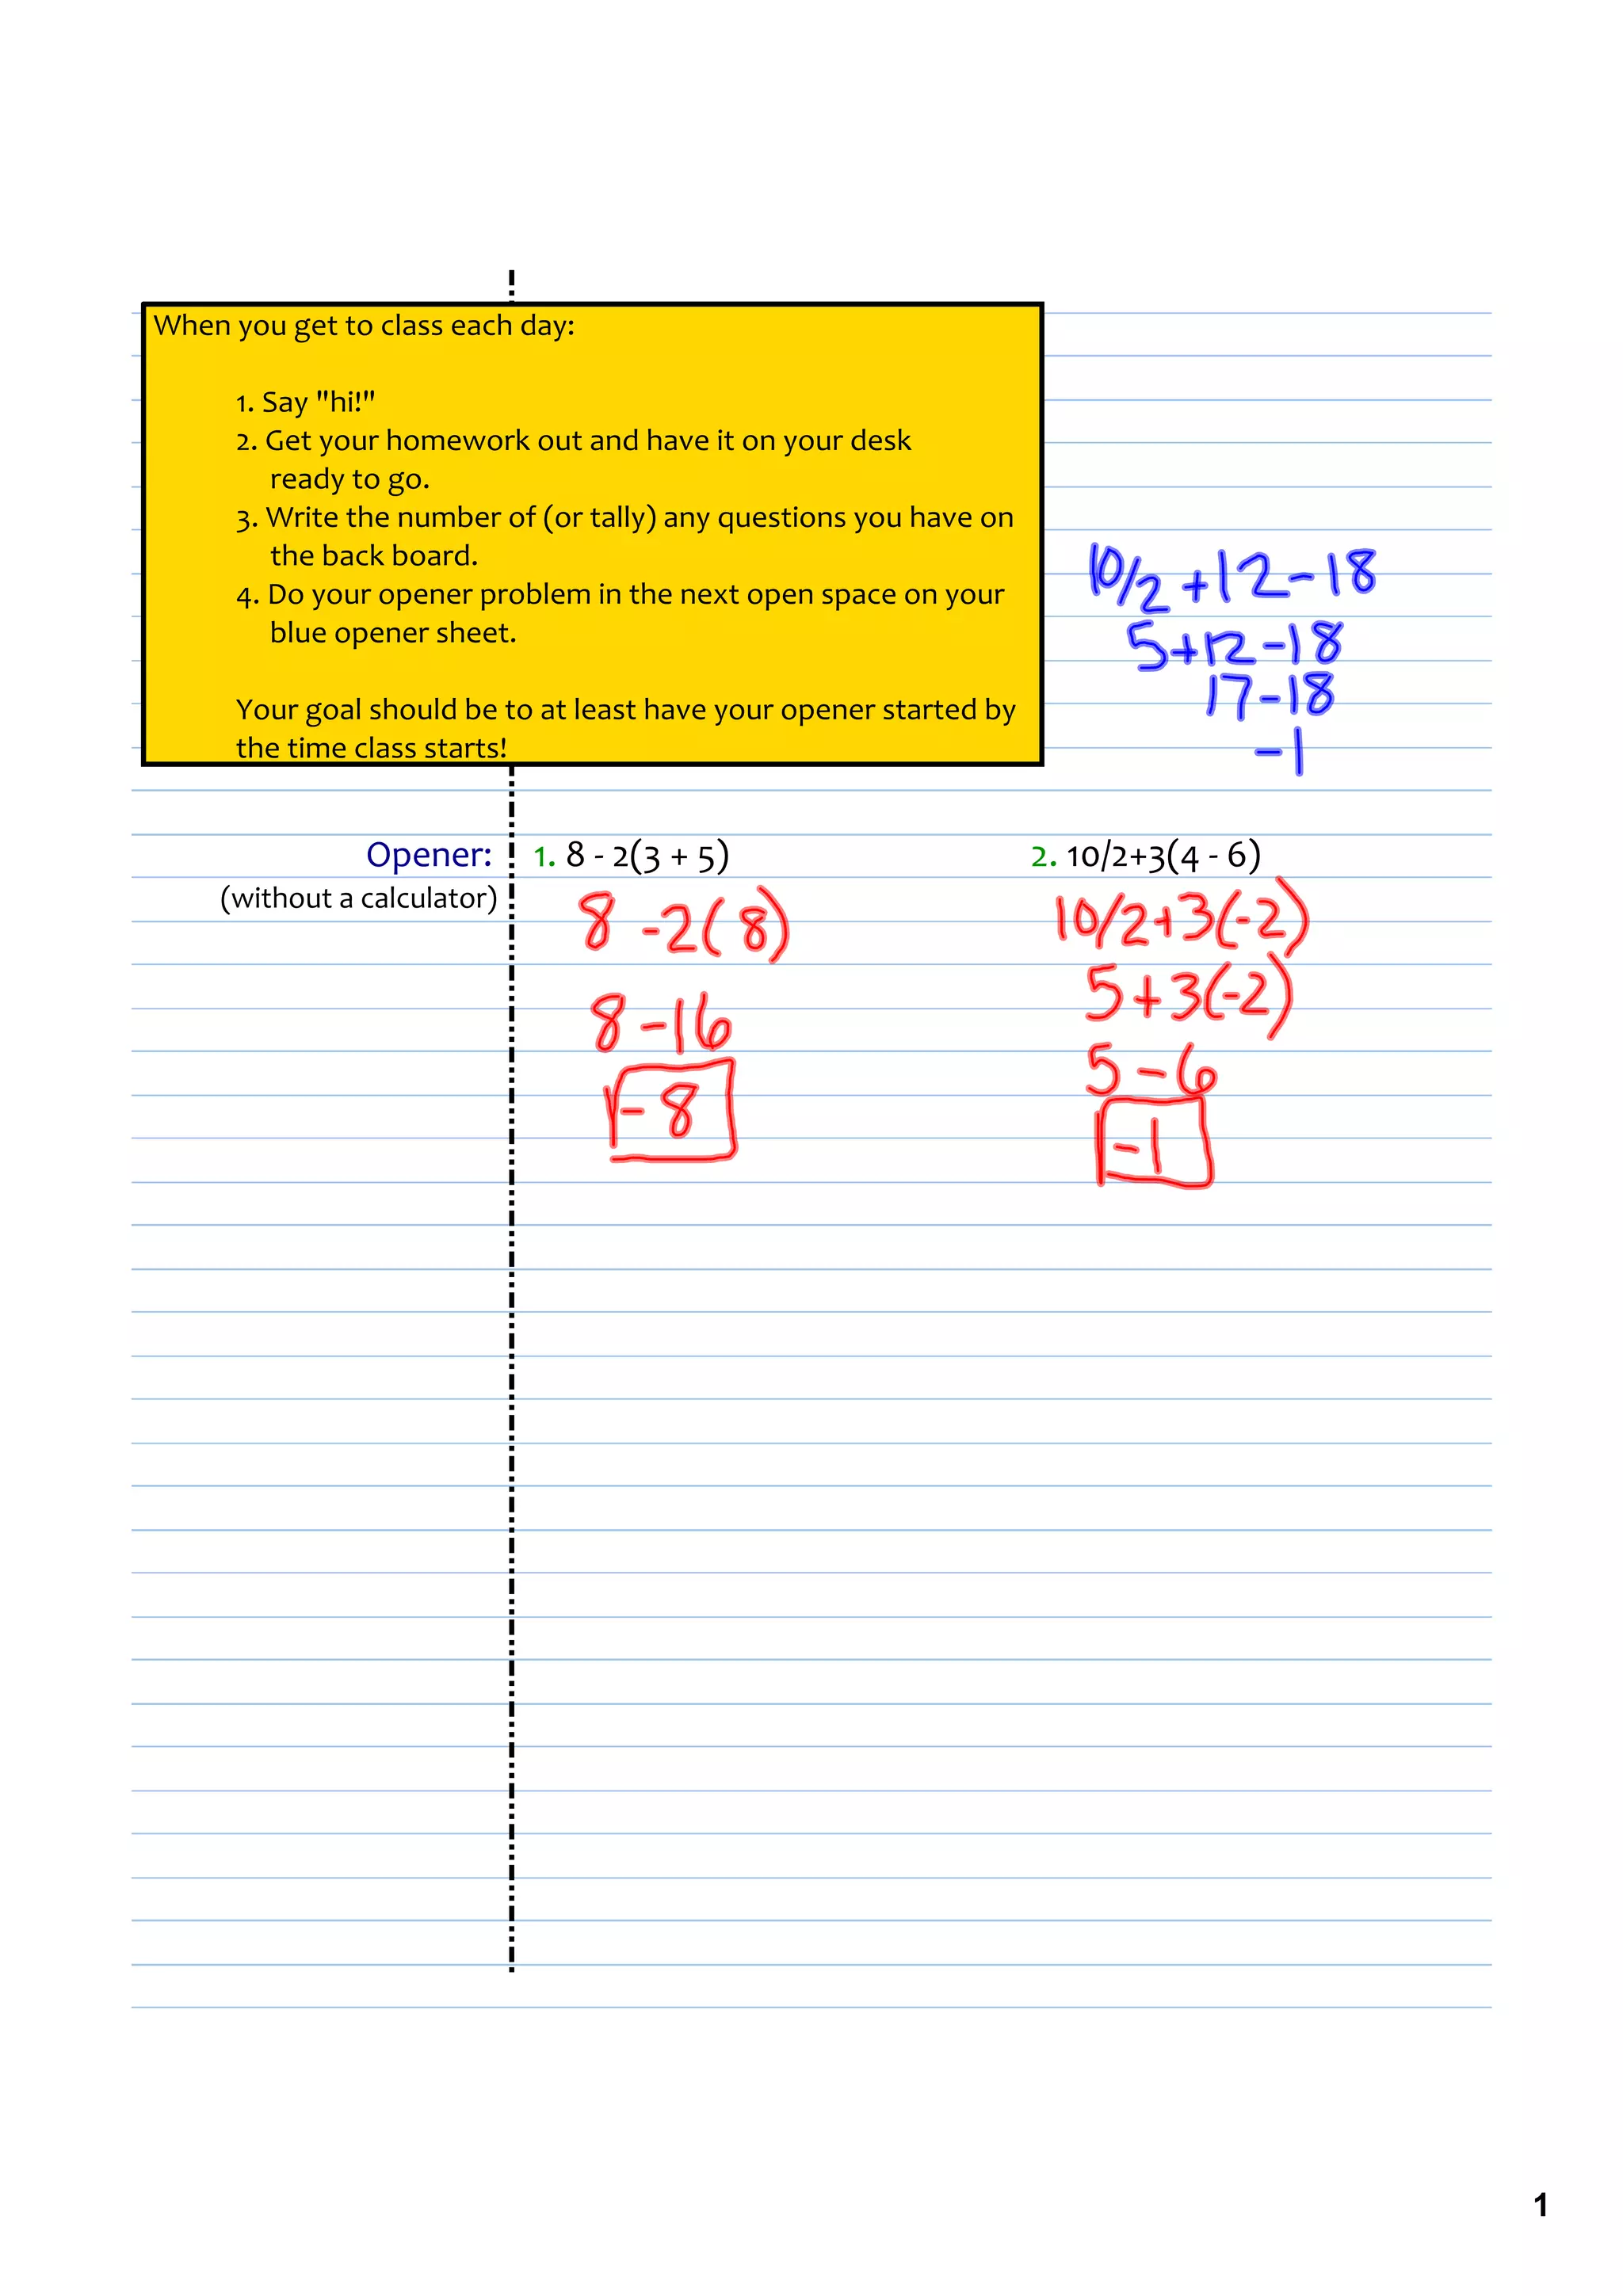 When you get to class each day:
1. Say "hi!"
2. Get your homework out and have it on your desk
ready to go.
3. Write the number of (or tally) any questions you have on
the back board.
4. Do your opener problem in the next open space on your
blue opener sheet.
Your goal should be to at least have your opener started by
the time class starts!
10/2+12-18
5+12-18
17-18
-1
Opener:
(without a calculator)
1. 8 - 2(3 + 5)
8-2(8)
8-16
-8
2. 10/2+3(4 - 6)
10/2+3(-2)
5+3(-2)
5-6
-1
1